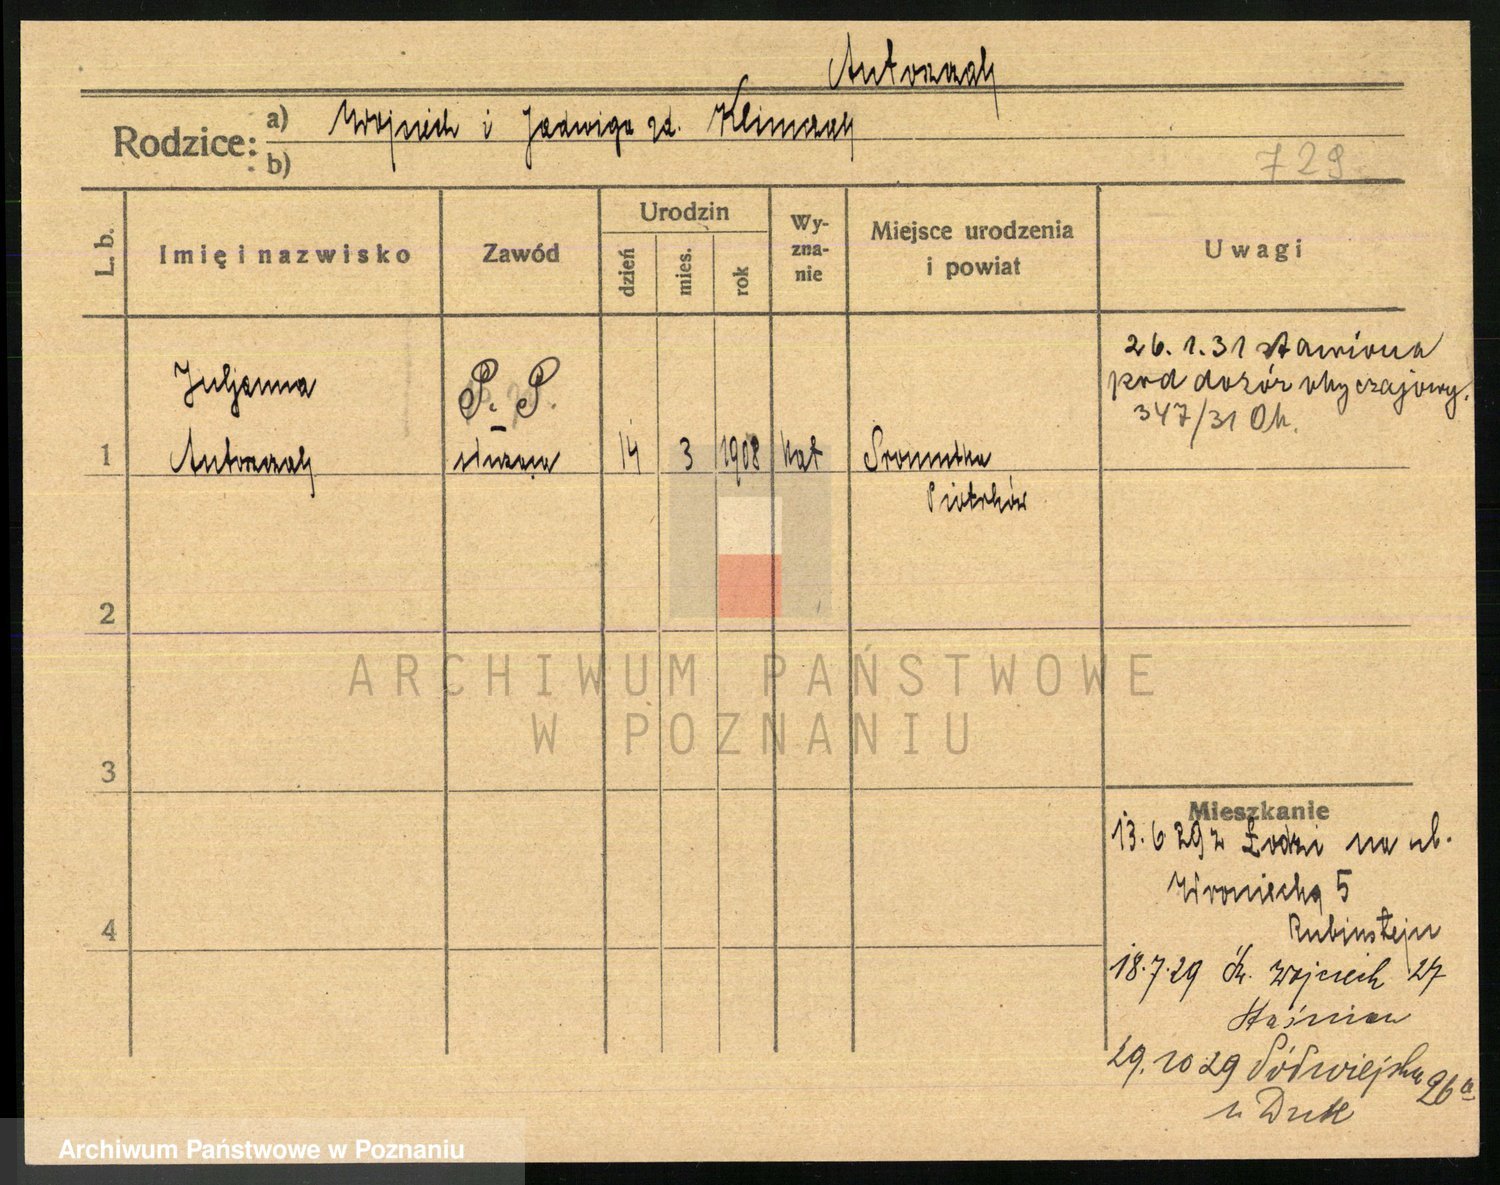 Antoszak
Rodzice:
a) Wojciech i Jadwiga zd. Klimczak
b)
729
L. b.
Imię i nazwisko
Zawód
Urodzin
dzień
mies.
rok
Wy-
zna-
nie
Miejsce urodzenia
i powiat
Uwagi
26.1.31 stawiona
pod dozór obyczajowy.
347/31 Ok.
Juljanna
P. P.
1
Antoszak
służąca
14
3
1908
kat
Sromutka
Piotrków
2
ARCHIWUM PAŃSTWOWE
W POZNANIU
3
Mieszkanie
13.6 29 z Łodzi na ul.
Wroniecką 5
Rubinstejn
4
18.7.29 Św. Wojciech 27
29.10 29 Półwiejska 26a
u
Archiwum Państwowe w Poznaniu